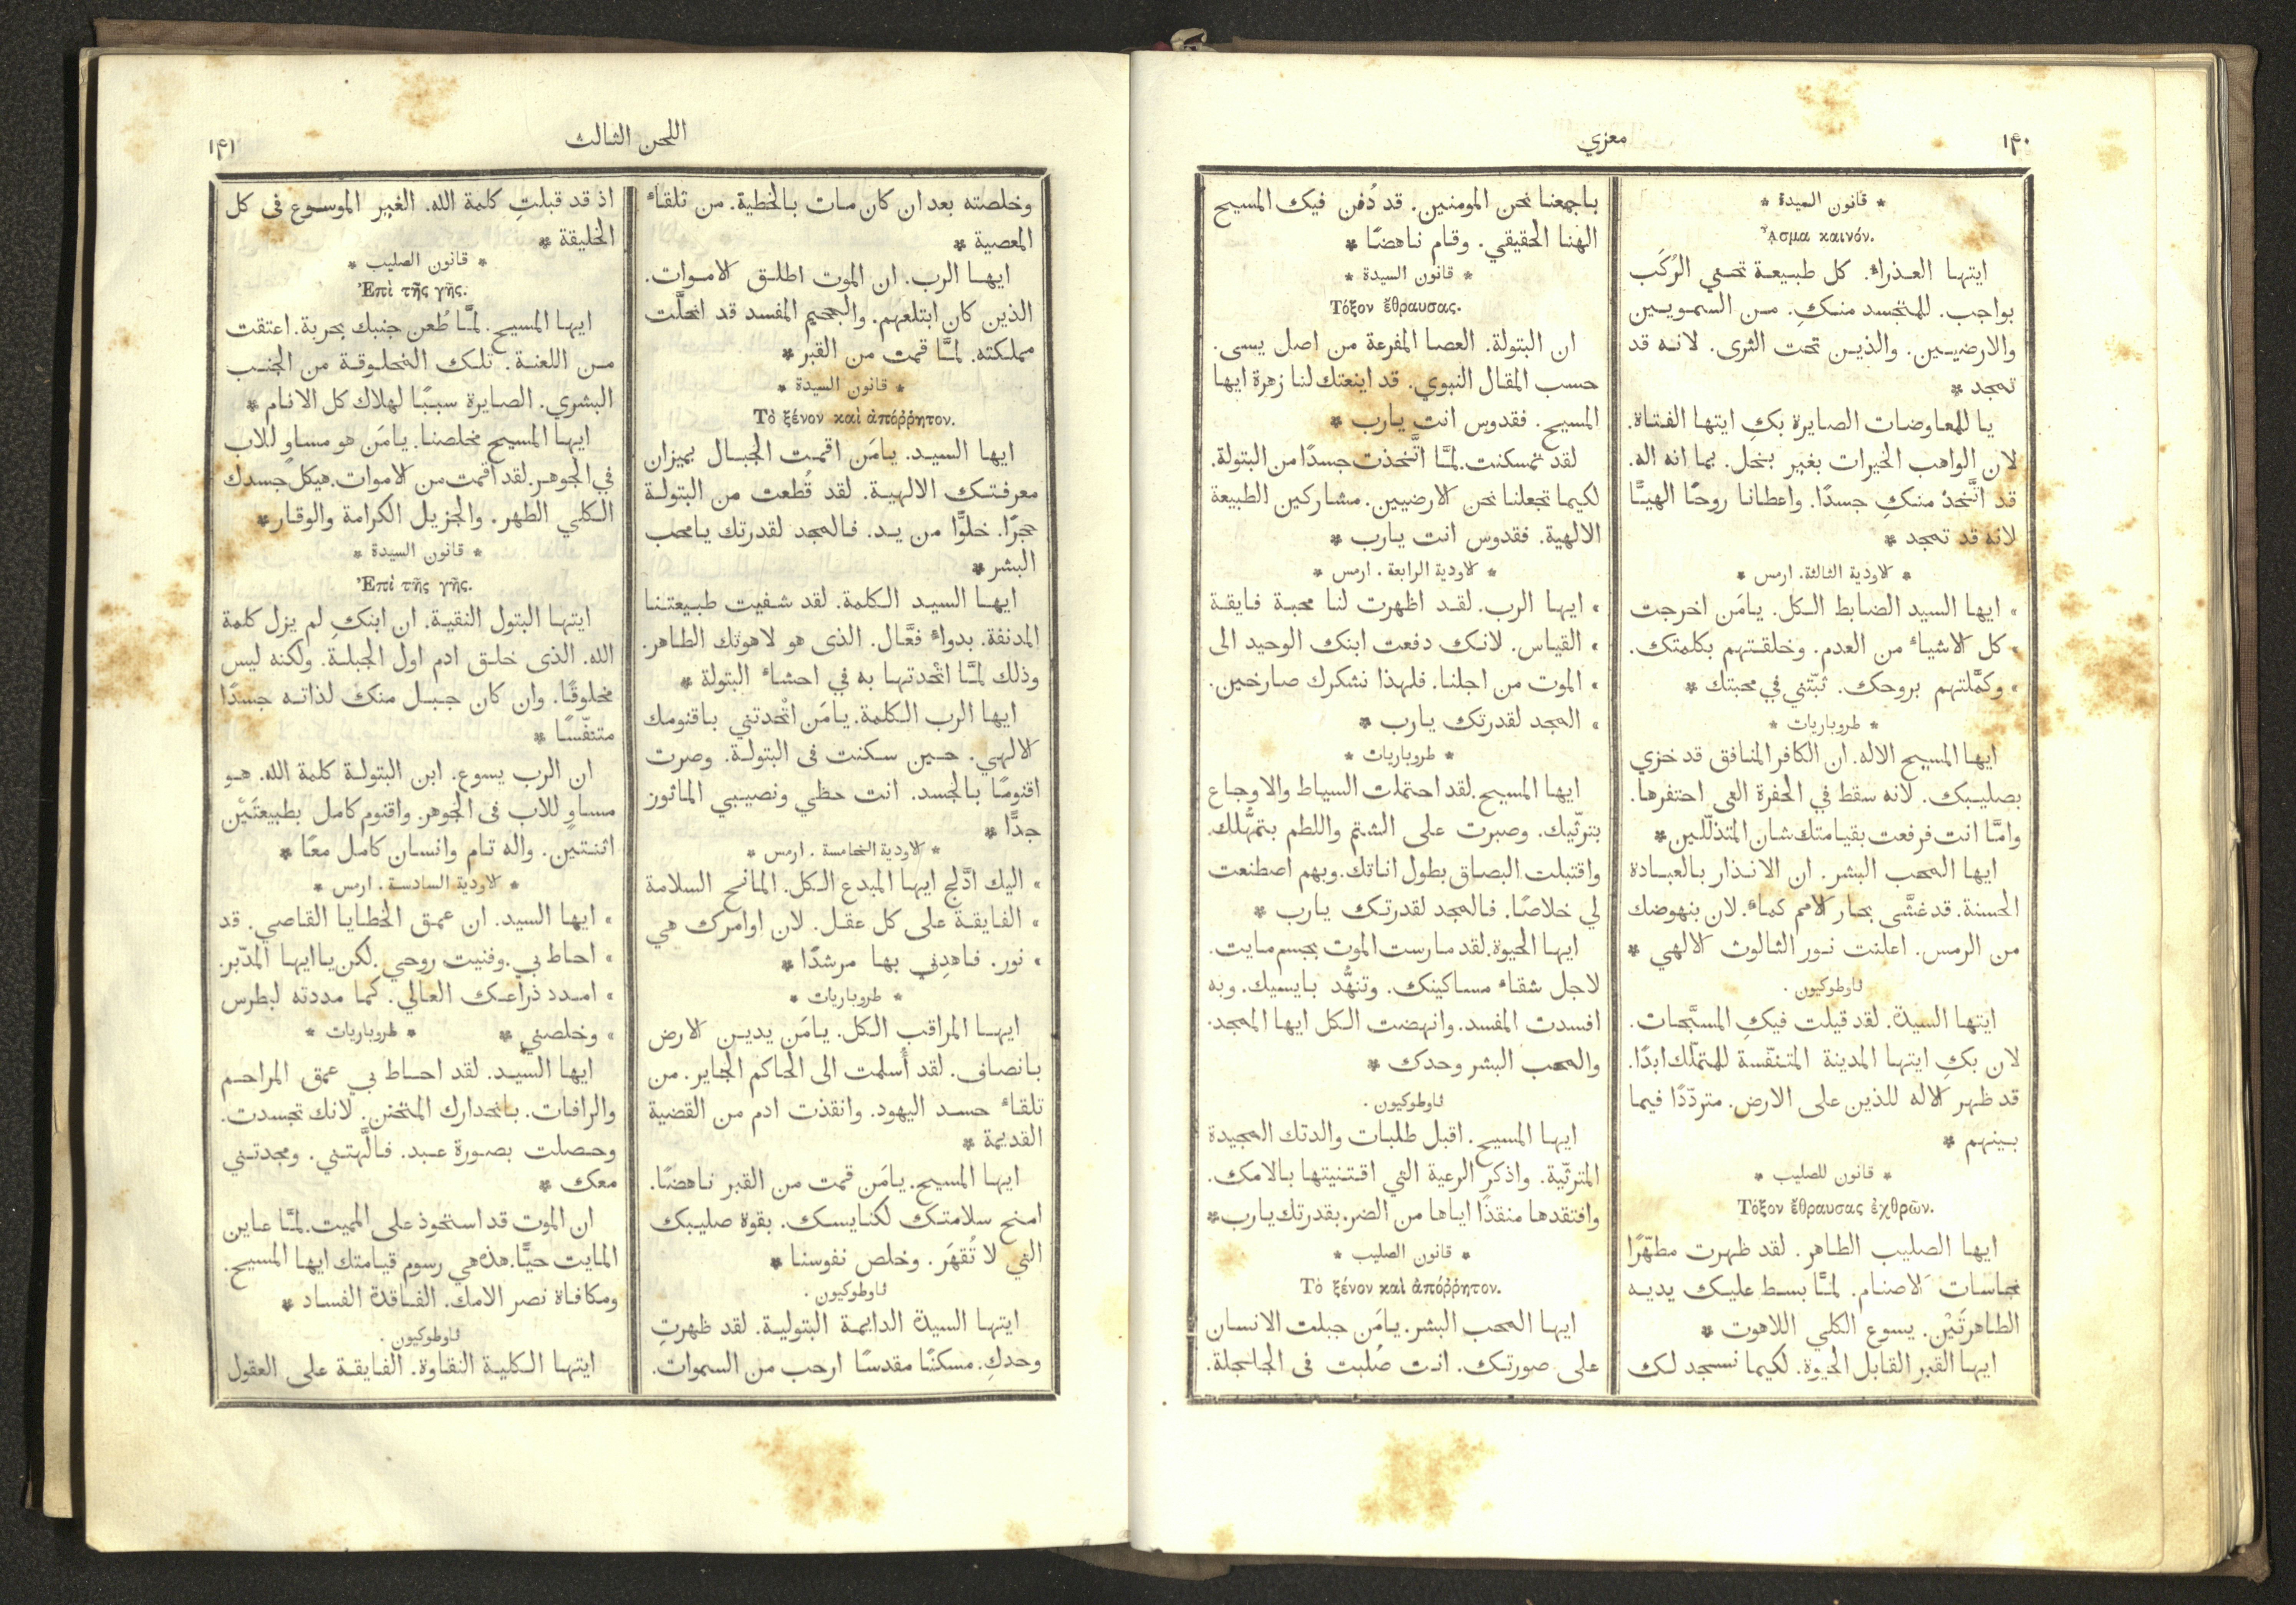 ١٤٠
معزي
* قانون السيدة *
ᾎσμα καινόν.
ايتها العذراء. كل طبيعة تحني الرُكَب
بواجب. للمتجسد منكِ. من السمويين
والارضيين. والذين تحت الثرى. لانه قد
تمجد *
يا للمعاوضات الصايرة بكِ ايتها الفتاة.
لان الواهب الخيرات بغير بخل. بما انه اله.
قد اتَّخذ منكِ جسدًا. واعطانا روحًا الهيًّا
لانه قد تمجد *
* لاودية الثالثة. ارمس *
» ايها السيد الضابط الكل. يامَن اخرجت
» كل الاشياء من العدم. وخلقتهم بكلمتك.
» وكمَّلتهم بروحك. ثبّتني في محبتك *
* طروباريات *
ايها المسيح الاله. ان الكافر المنافق قد خزي
بصليبك. لانه سقط في الحفرة التي احتفرها.
وامَّا انت فرفعت بقيامتك شان المتذلّلين *
ايها المحب البشر. ان الانذار بالعبادة
الحسنة. قد غشَّى بحار الامم كماء. لان بنهوضك
من الرمس. اعلنت نور الثالوث الالهي *
ثاوطوكيون.
ايتها السيدة. لقد قيلت فيكِ المسبَّحات.
لان بكِ ايتها المدينة المتنفّسة للمتملّك ابدًا.
قد ظهر الاله للذين على الارض. متردّدًا فيما
بينهم *
* قانون للصليب *
Τόξον ἔθραυσας ἐχθρῶν.
ايها الصليب الطاهر. لقد ظهرت مطهّرًا
نجاسات الاصنام. لمَّا بسط عليك يديه
الطاهرتَيْن. يسوع الكلي اللاهوت *
ايها القبر القابل الحيوة. لكيما نسجد لك
باجمعنا نحن المومنين. قد دُفن فيك المسيح
الهنا الحقيقي. وقام ناهضًا *
* قانون السيدة *
Τόξον ἔθραυσας.
ان البتولة. العصا المفرعة من اصل يسى.
حسب المقال النبوي. قد اينعتك لنا زهرة ايها
المسيح. فقدوس انت يارب *
لقد تمسكنت. لمَّا اتَّخذت جسدًا من البتولة.
لكيما تجعلنا نحن الارضيين. مشاركين الطبيعة
الالهية. فقدوس انت يارب *
* لاودية الرابعة. ارمس *
» ايها الرب. لقد اظهرت لنا محبة فايقة
» القياس. لانك دفعت ابنك الوحيد الى
» الموت من اجلنا. فلهذا نشكرك صارخين.
» المجد لقدرتك يارب *
* طروباريات *
ايها المسيح. لقد احتملت السياط والاوجاع
بترثّيك. وصبرت على الشتم واللطم بتمهُّلك.
واقتبلت البصاق بطول اناتك. وبهم اصطنعت
لي خلاصًا. فالمجد لقدرتك يارب *
ايها الحيوة. لقد مارست الموت بجسم مايت.
لاجل شقاء مساكينك. وتنهُّد بايسيك. وبه
افسدت المفسد. وانهضت الكل ايها الممجد.
والمحب البشر وحدك *
ثاوطوكيون.
ايها المسيح. اقبل طلبات والدتك المجيدة
المترثّية. واذكر الرعية التي اقتنيتها بالامك.
وافتقدها منقذًا اياها من الضر. بقدرتك يارب *
* قانون الصليب *
Τὸ ξένον καὶ ἀπόῤῥητον.
ايها المحب البشر. يامَن جبلت الانسان
على صورتك. انت صُلبت فى الجلجلة.
اللحن الثالث
١٤١
وخلصته بعد ان كان مات بالخطية. من تلقاء
المعصية *
ايها الرب. ان الموت اطلق الاموات.
الذين كان ابتلعهم. والجحيم المفسد قد انحلَّت
مملكته. لمَّا قمت من القبر *
* قانون السيدة *
Τὸ ξένον καὶ ἀπόῤῥητον.
ايها السيد. يامَن اقمت الجبال بميزان
معرفتك الالهية. لقد قُطعت من البتولة
حجرًا. خلوًّا من يد. فالمجد لقدرتك يامحب
البشر *
ايها السيد الكلمة. لقد شفيت طبيعتنا
المدنفة. بدواء فعَّال. الذى هو لاهوتك الطاهر.
وذلك لمَّا اتّحدتها به في احشاء البتولة *
ايها الرب الكلمة. يامَن اتّحدتني باقنومك
الالهي. حين سكنت فى البتولة. وصرت
اقنومًا بالجسد. انت حظي ونصيبي الماثور
جدًّا *
* لاودية الخامسة. ارمس *
» اليك ادَّلج ايها المبدع الكل. المانح السلامة
» الفايقة على كل عقل. لان اوامرك هي
» نور. فاهدِني بها مرشدًا *
* طروباريات *
ايها المراقب الكل. يامَن يدين الارض
بانصاف. لقد أُسلمت الى الحاكم الجاير. من
تلقاء حسد اليهود. وانقذت ادم من القضية
القديمة *
ايها المسيح. يامَن قمت من القبر ناهضًا.
امنح سلامتك لكنايسك. بقوة صليبك
التي لا تُقهَر. وخلص نفوسنا *
ثاوطوكيون.
ايتها السيدة الدايمة البتولية. لقد ظهرتِ
وحدكِ. مسكنًا مقدسًا ارحب من السموات.
اذ قد قبلتِ كلمة الله. الغير الموسوع فى كل
الخليقة *
* قانون الصليب *
Ἐπὶ τῆς γῆς.
ايها المسيح. لمَّا طُعن جنبك بحربة. اعتقت
من اللعنة. تلك المخلوقة من الجنب
البشري. الصايرة سببًا لهلاك كل الانام *
ايها المسيح مخلصنا. يامَن هو مساوٍ للاب
في الجوهر. لقد اقمت من الاموات. هيكل جسدك
الكلي الطهر. والجزيل الكرامة والوقار *
* قانون السيدة *
Ἐπὶ τῆς γῆς.
ايتها البتول النقية. ان ابنكِ لم يزل كلمة
الله. الذى خلق ادم اول الجبلة. ولكنه ليس
مخلوقًا. وان كان جبل منك لذاته جسدًا
متنفّسًا *
ان الرب يسوع. ابن البتولة كلمة الله. هو
مساوٍ للاب فى الجوهر. واقنوم كامل بطبيعتَيْن
اثنتين. واله تام وانسان كامل معًا *
* لاودية السادسة. ارمس *
» ايها السيد. ان عمق الخطايا القاصي. قد
» احاط بي. وفنيت روحي. لكن يا ايها المدّبر.
» امدد ذراعك العالي. كما مددته لبطرس
» وخلصني * * طروباريات *
ايها السيد. لقد احاط بي عمق المراحم
والرافات. بانحدارك المتحنن. لانك تجسدت.
وحصلت بصورة عبد. فالَّهتني. ومجدتني
معك *
ان الموت قد استحوذ على المميت. لمَّا عاين
المايت حيًّا. هذه هي رسوم قيامتك ايها المسيح.
ومكافاة نصر الامك. الفاقدة الفساد *
ثاوطوكيون.
ايتها الكلية النقاوة. الفايقة على العقول